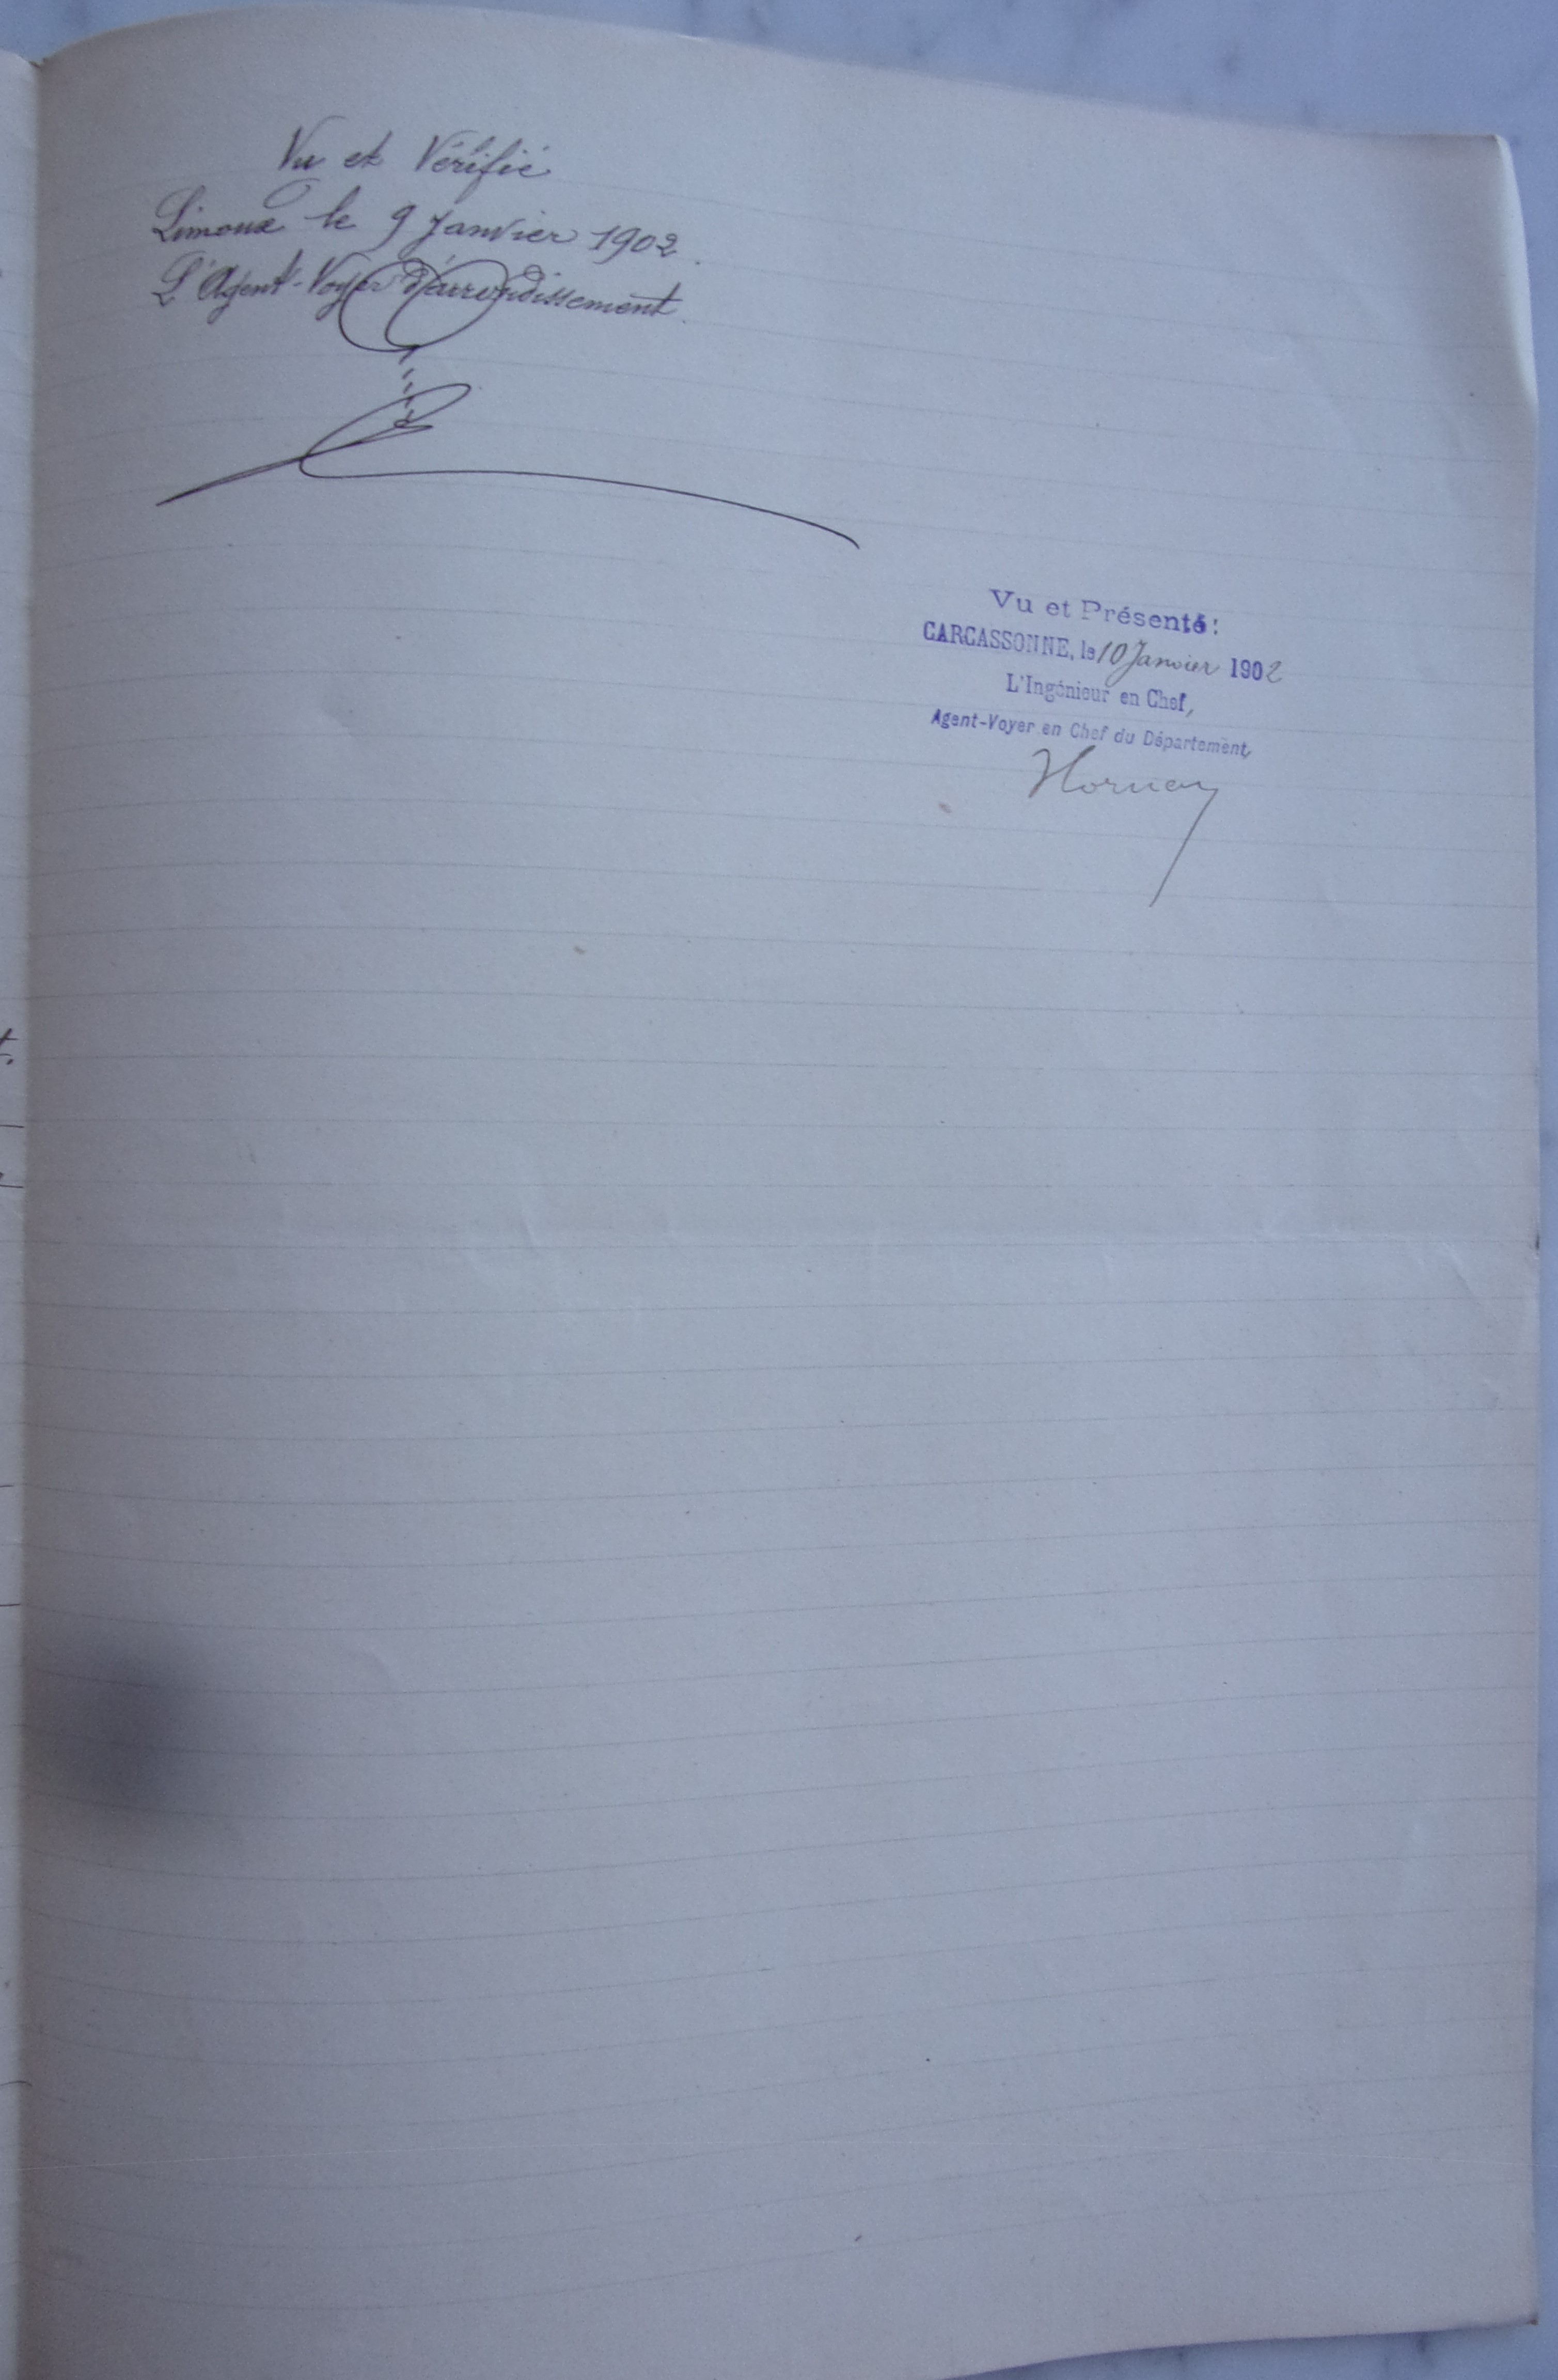 Vu et Vérifié
Limoux le 9 Janvier 1902.
L'Agent-Voyer d'arrondissement.
Vu et Présenté:
CARCASSONNE, le 10 Janvier 1902
L'Ingénieur en Chef,
Agent-Voyer en Chef du Département,